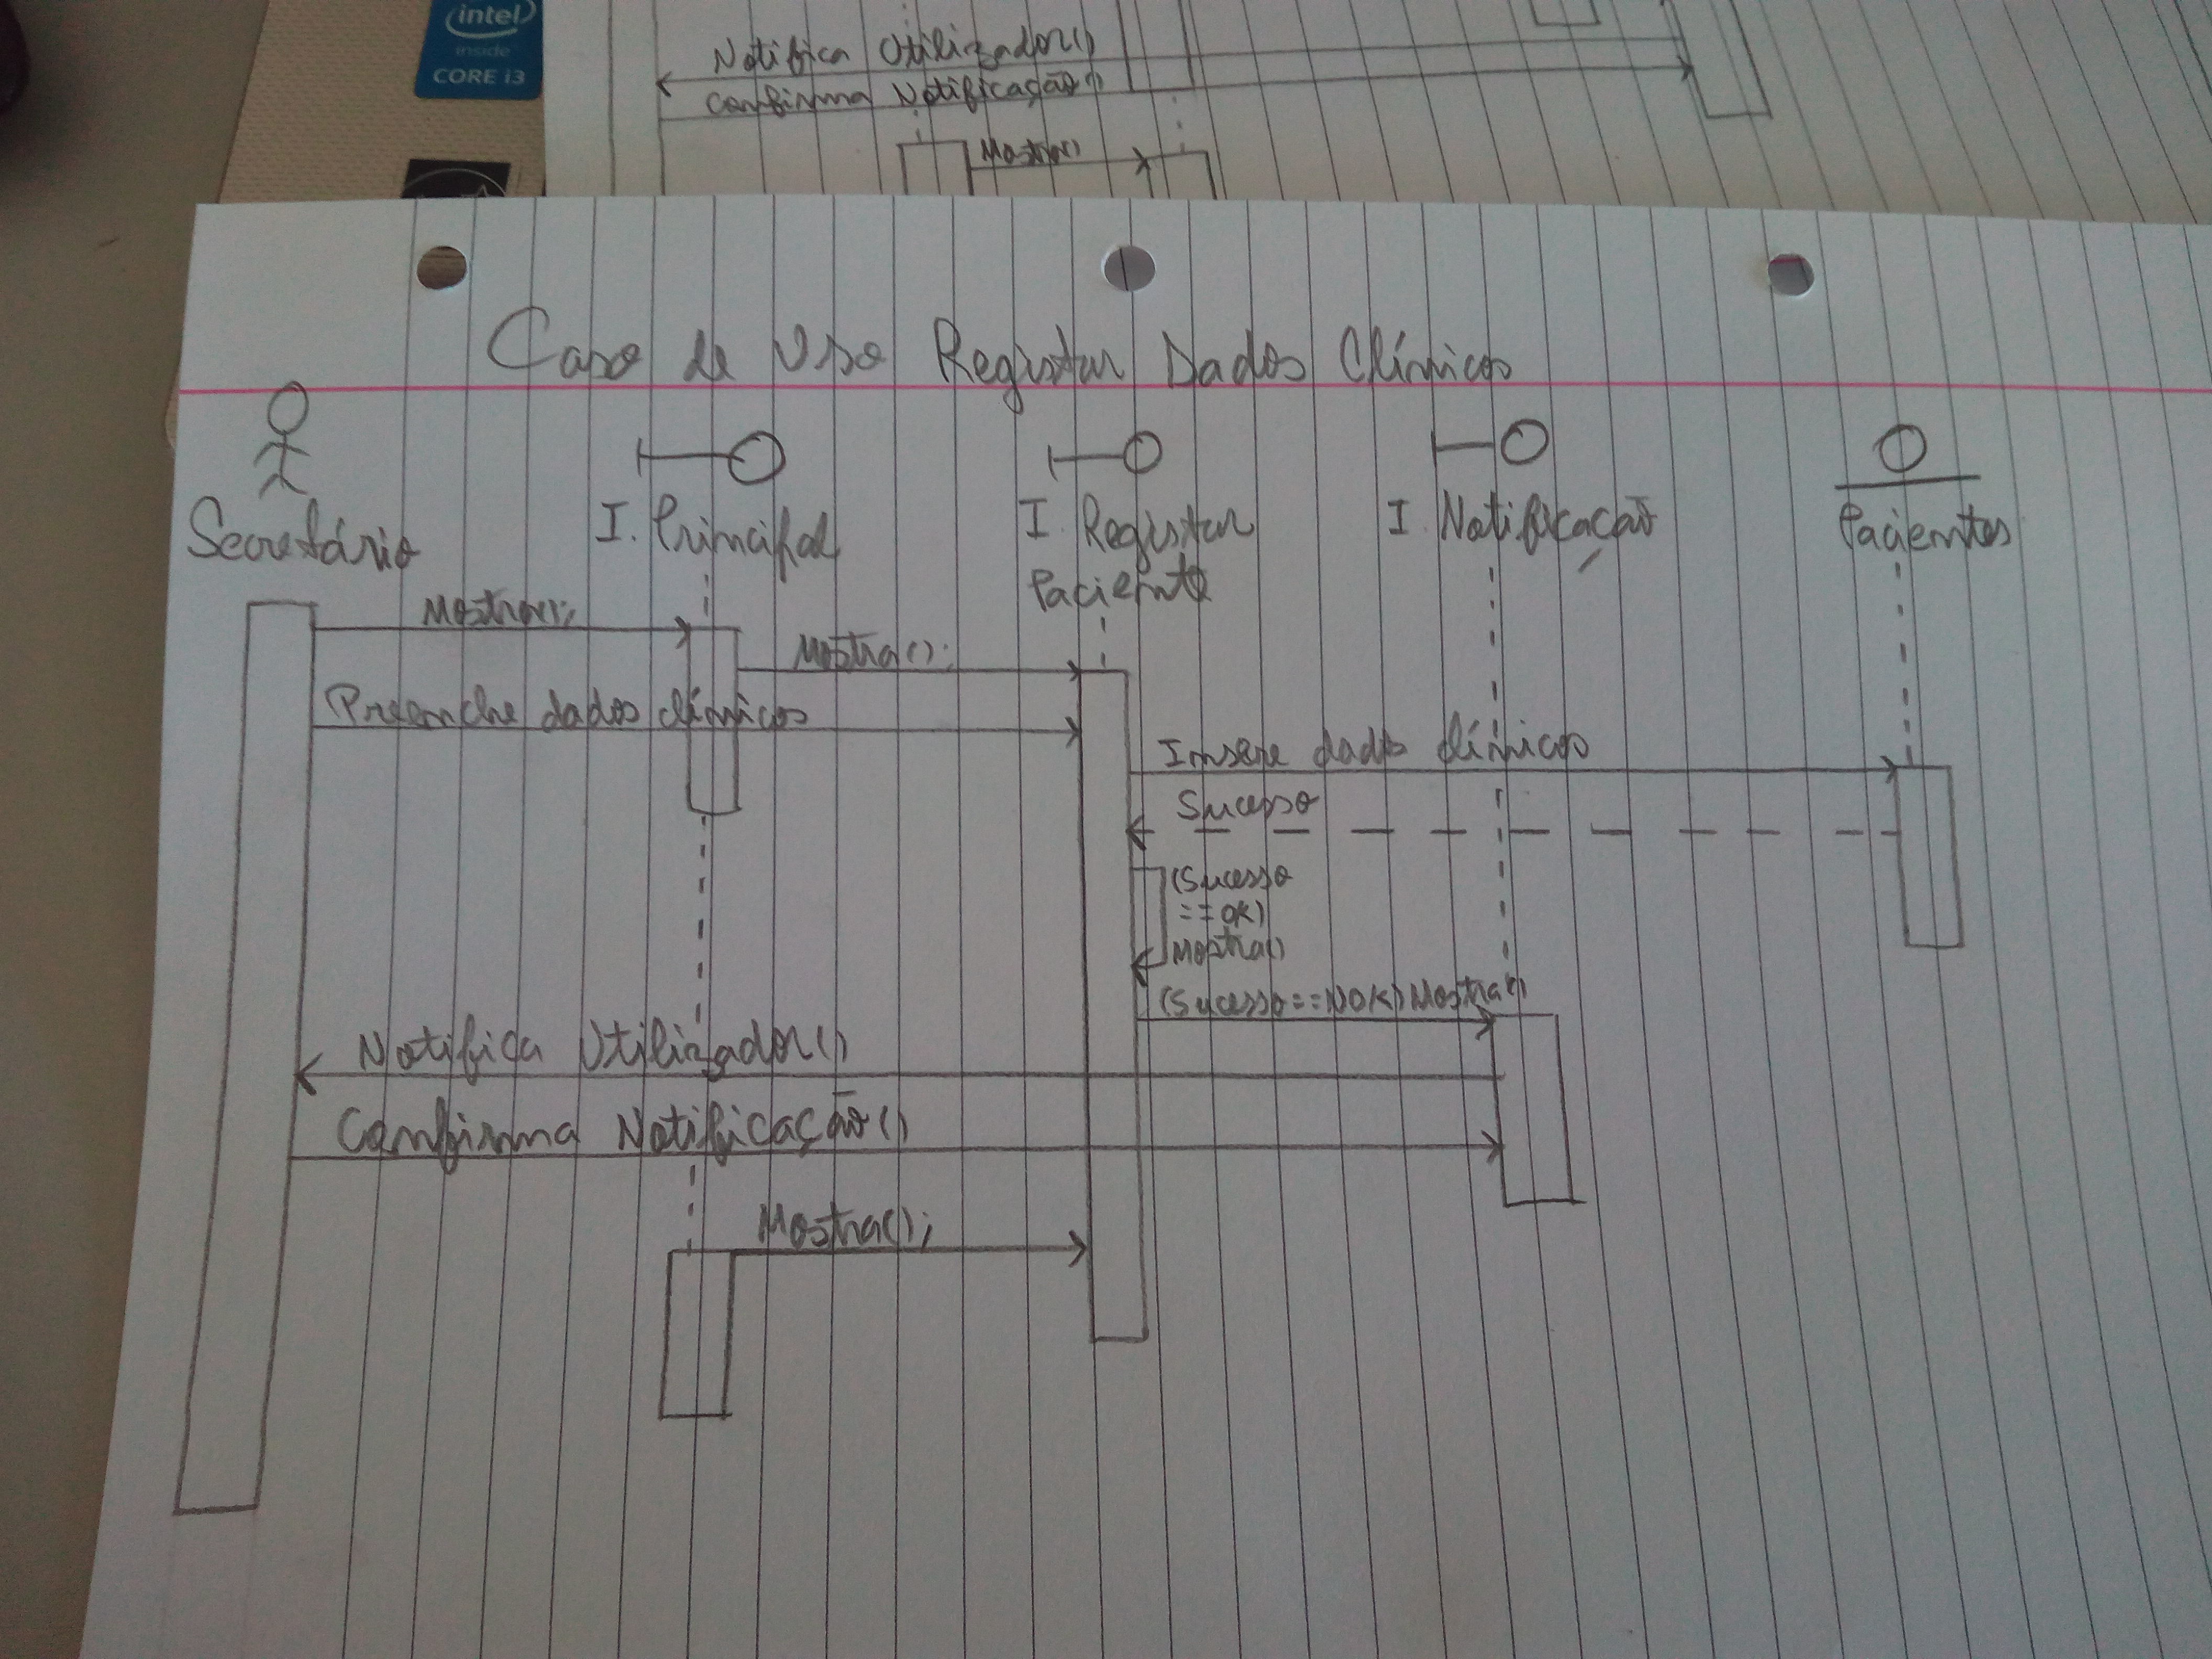 intel
inside
CORE i3
Notifica Utilizador()
Confirma Notificação()
Mostra()
Caso de Uso Registar Dados Clínicos
Secretário
I. Principal
I. Registar
Paciente
I. Notificação
Pacientes
Mostra();
Mostra();
Preenche dados clínicos
Insere dados clínicos
Sucesso
(Sucesso
==OK)
Mostra()
(Sucesso==NOK) Mostra()
Notifica Utilizador()
Confirma Notificação()
Mostra();